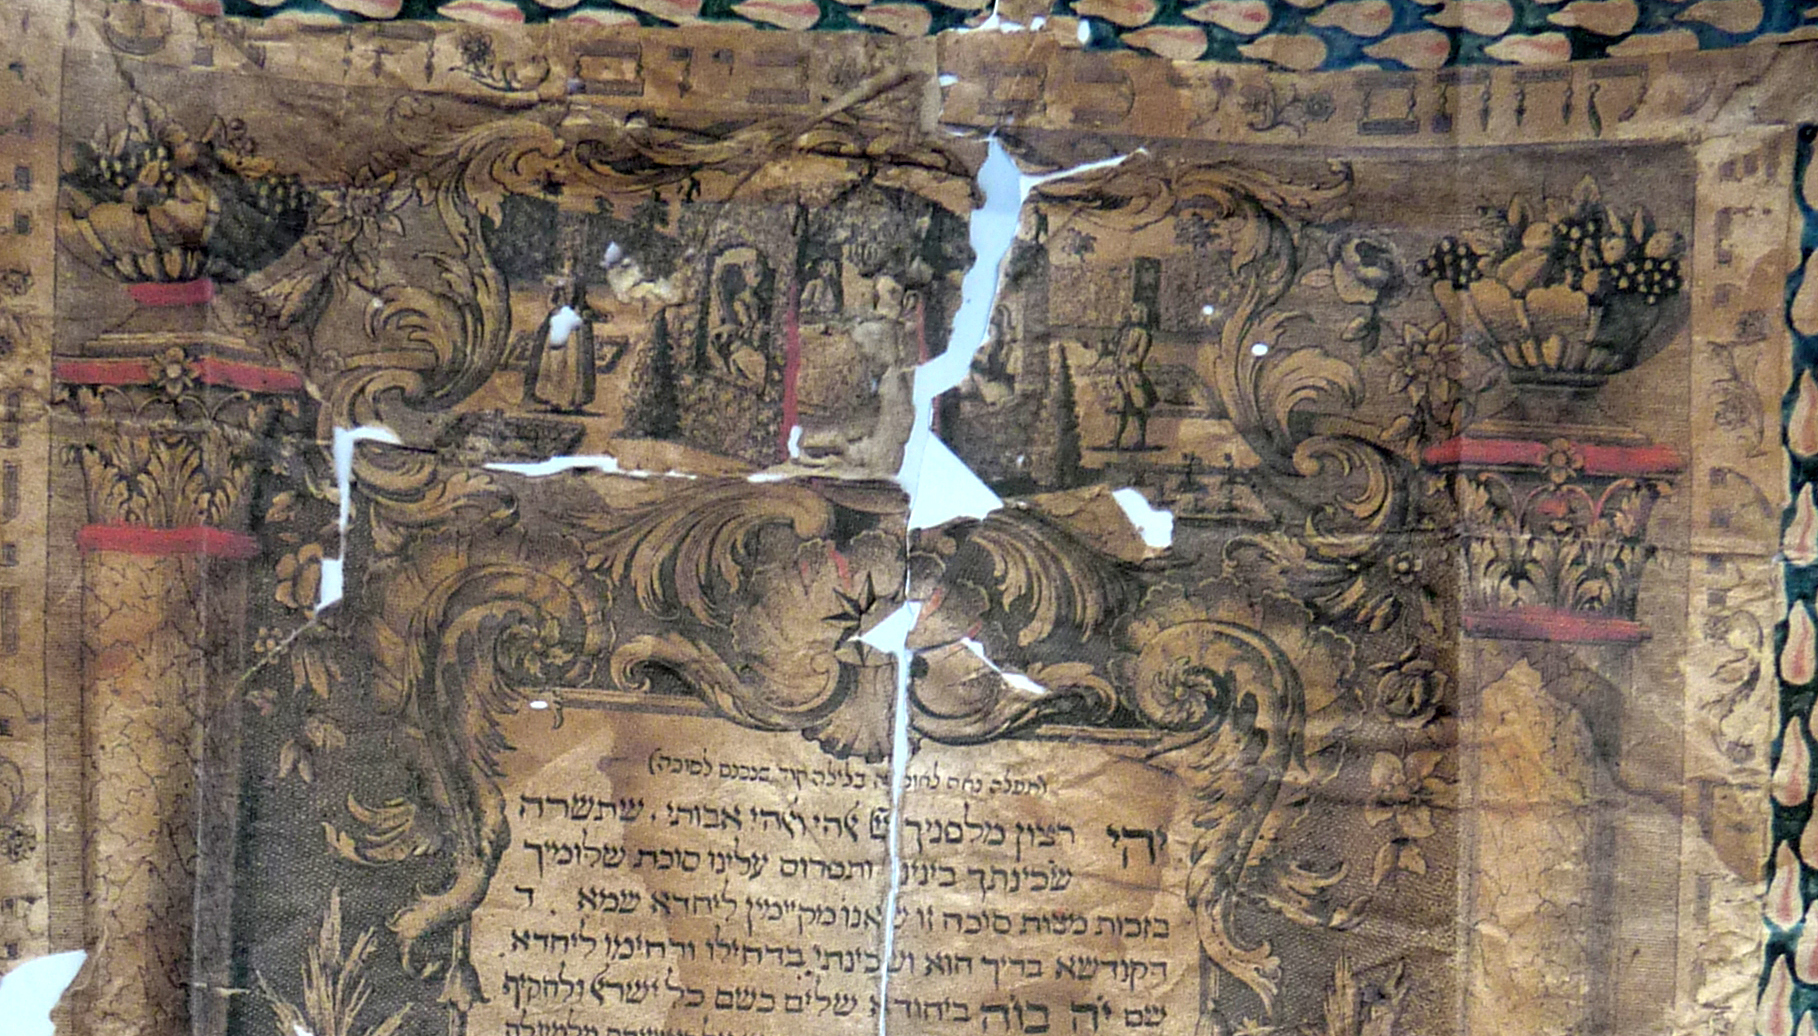 (תפלה נאה לאומרה בלילה שנכנס לסוכה)
יהי רצון מלפניך אלהי ואלהי אבותי . שתשרה
שכינתך בינינו ותפרוס עלינו סוכת שלומיך
בזכות מצות סוכה זו שאנו מקיימין ליחדא שמא . ד
דקודשא בריך הוא ושכינתי בדחילו ורחימו ליחדא
שם יה בוה ביחודא שלים בשם כל ישראל ולהקיף